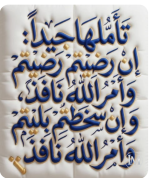 تأملها جيدا:
إن رضيتم رضيتم
وأمر الله نافذ،
وإن سخطتم بليتم
وأمر الله نافذ